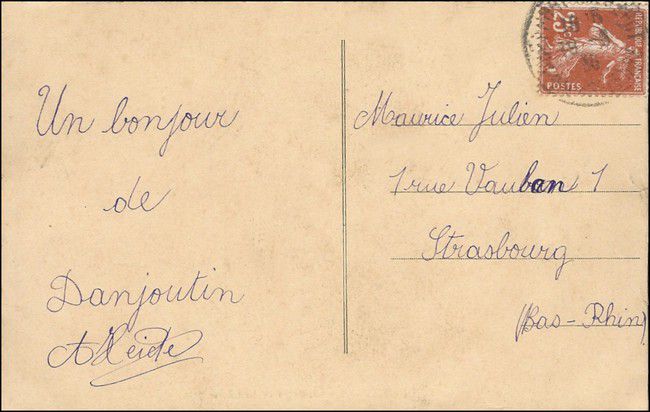 Un bonjour
de
Danjoutin
Maurice Julien
1 rue Vauban 1
Strasbourg
(Bas-Rhin)
25
REPUBLIQUE FRANÇAISE
POSTES